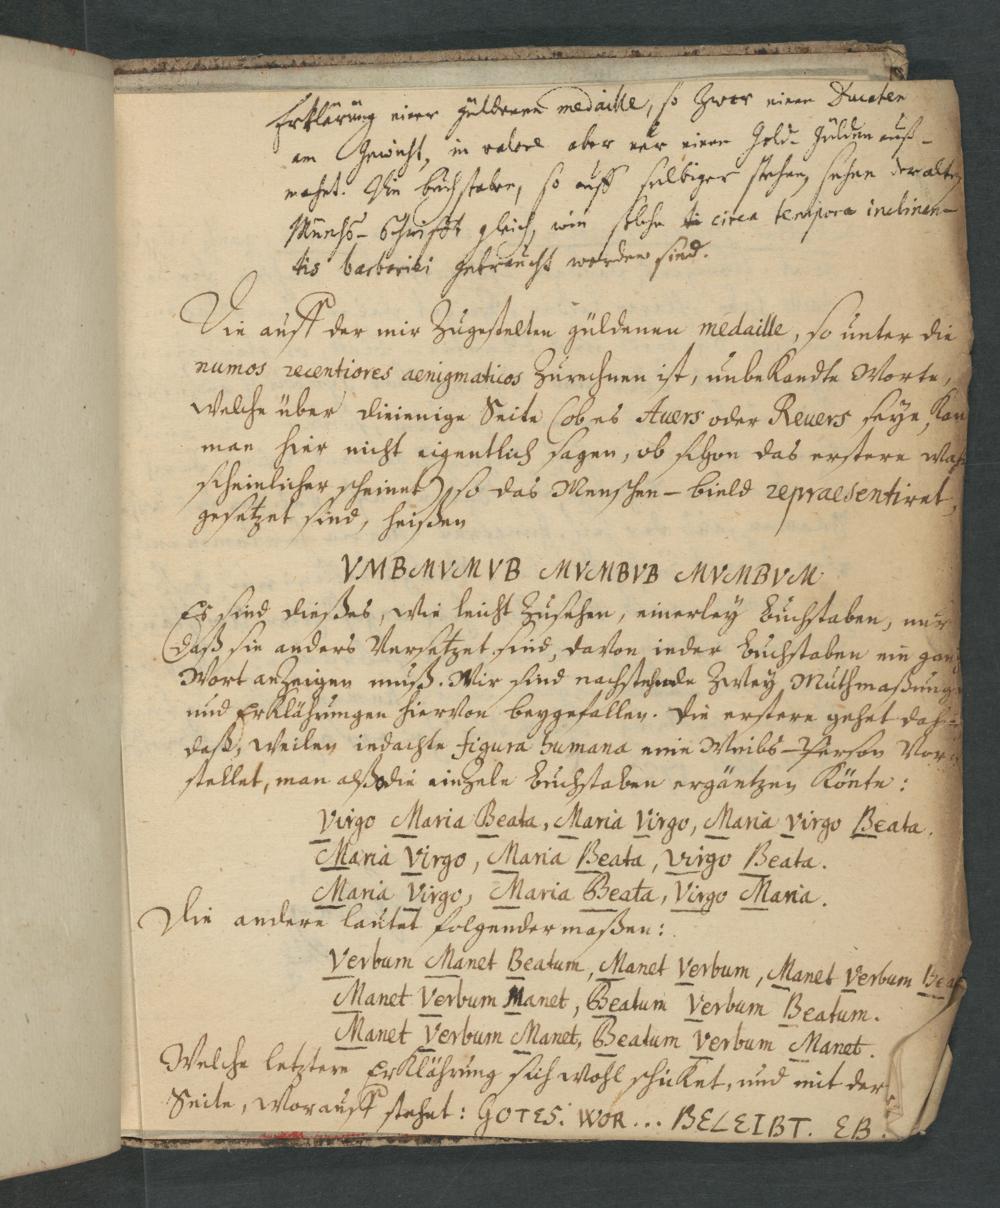 Erklärung einer güldenen medaille, so zwar einen Ducaten
am Gewicht, in valore aber nur einen Gold-Gülden auß-
machet. Die buchstaben, so auff selbiger stehen, sehen der alten
Münchs-Schrifft gleich, wie solche circa tempora inclinan-
tis barbariei gebraucht worden sind.
Die auff der mir zugestelten güldenen medaille, so unter die
numos recentiores aenigmaticos zurechnen ist, unbekandte Worte,
welche über dieienige Seite (ob es Avers oder Revers seye, kan
man hier nicht eigentlich sagen, ob schon das erstere wahr
scheinlicher scheinet) so das Menschen-bield repraesentiret,
gesetzet sind, heißen
VMBMVMVB MVMBVB MVMBVM.
Es sind dießes, wie leicht zusehen, einerley buchstaben, nur
daß sie anders versetzet sind, davon ieder buchstaben ein gantz
Wort anzeigen muß. Mir sind nachstehende zwey Muthmaßung
und Erklährungen hiervon beygefallen. Die erstere gehet dahin
daß, weilen iedachte figura humana eine Weibs-Person vor
stellet, man alßo die einzele buchstaben ergäntzen könte:
Virgo Maria Beata, Maria Virgo, Maria Virgo Beata.
Maria Virgo, Maria Beata, Virgo Beata.
Maria Virgo, Maria Beata, Virgo Maria.
Die andere lautet folgender maßen:
Verbum Manet Beatum, Manet Verbum, Manet Verbum Bea
Manet Verbum Manet, Beatum Verbum Beatum.
Manet Verbum Manet, Beatum Verbum Manet.
Welche letztere Erklährung sich wohl schicket, und mit der
Seite, worauff stehet: GOTES. WOR... BELEIBT. EB.